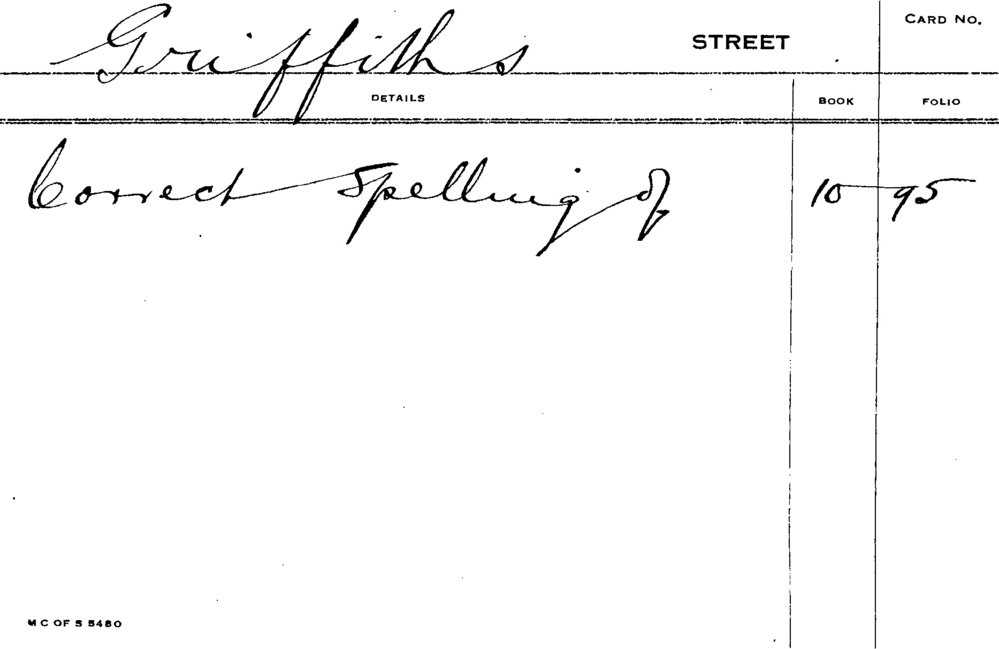 Griffiths STREET CARD NO.
DETAILS BOOK FOLIO
Correct Spelling of 10 95
M C OF S 5480